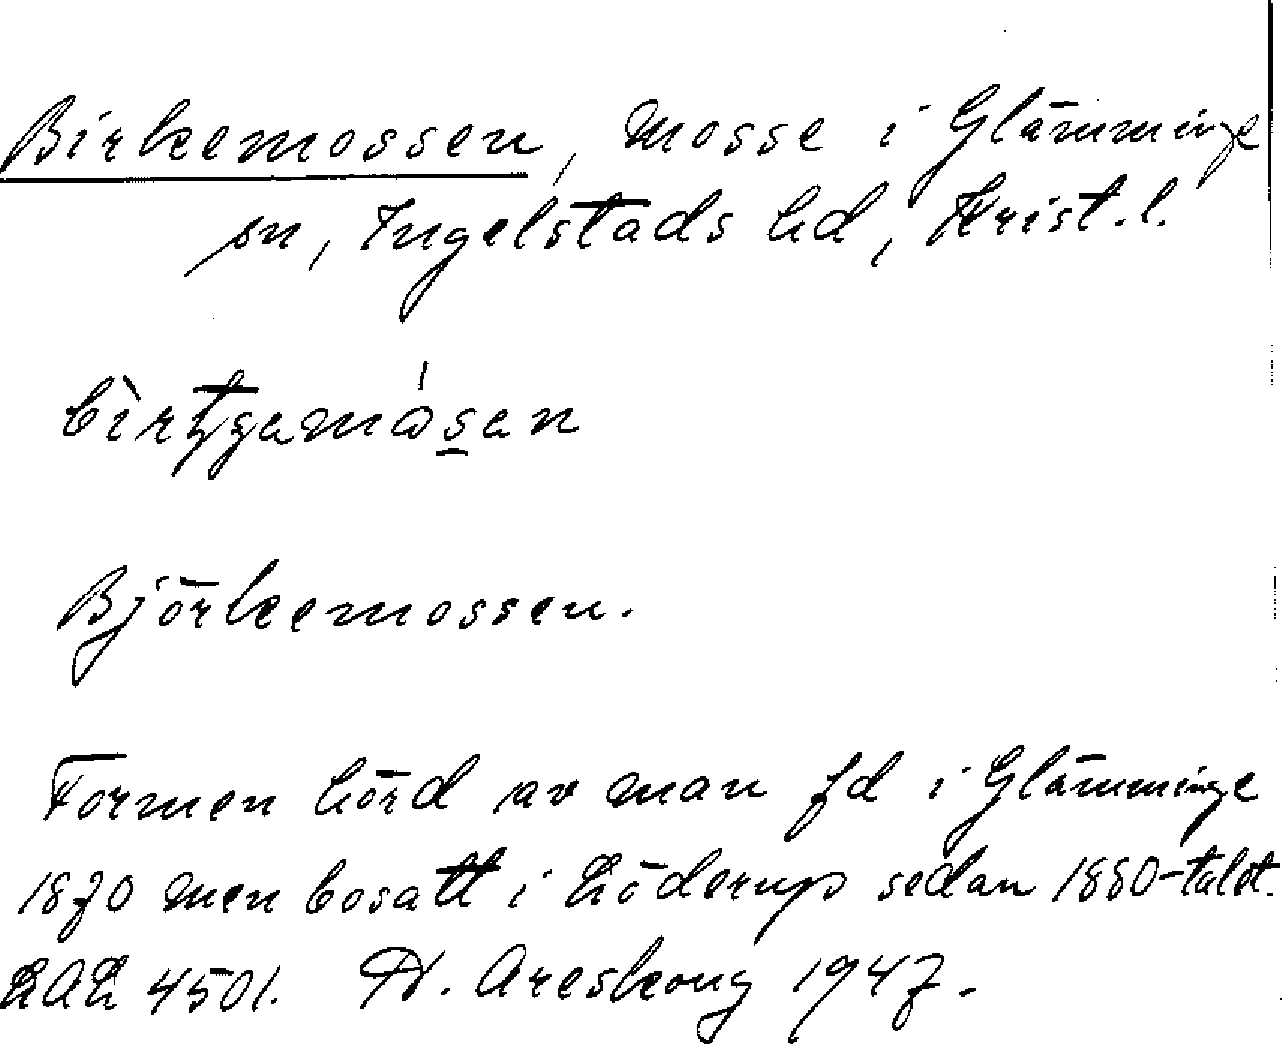 Birkemossen, mosse i Glämminge
sn, Ingelstads hd, Krist. l.
Björkemossen.
Formen hörd av man fd i Glämminge
1870 men bosatt i Löderup sedan 1880-talet.
LAL 4501. H. Areskoug 1947.